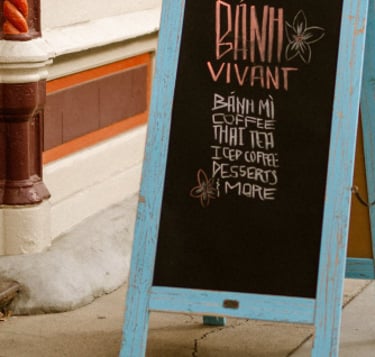 BÁNH
VIVANT
BÁNH MÌ
COFFEE
THAI TEA
ICED COFFEE
DESSERTS
& MORE